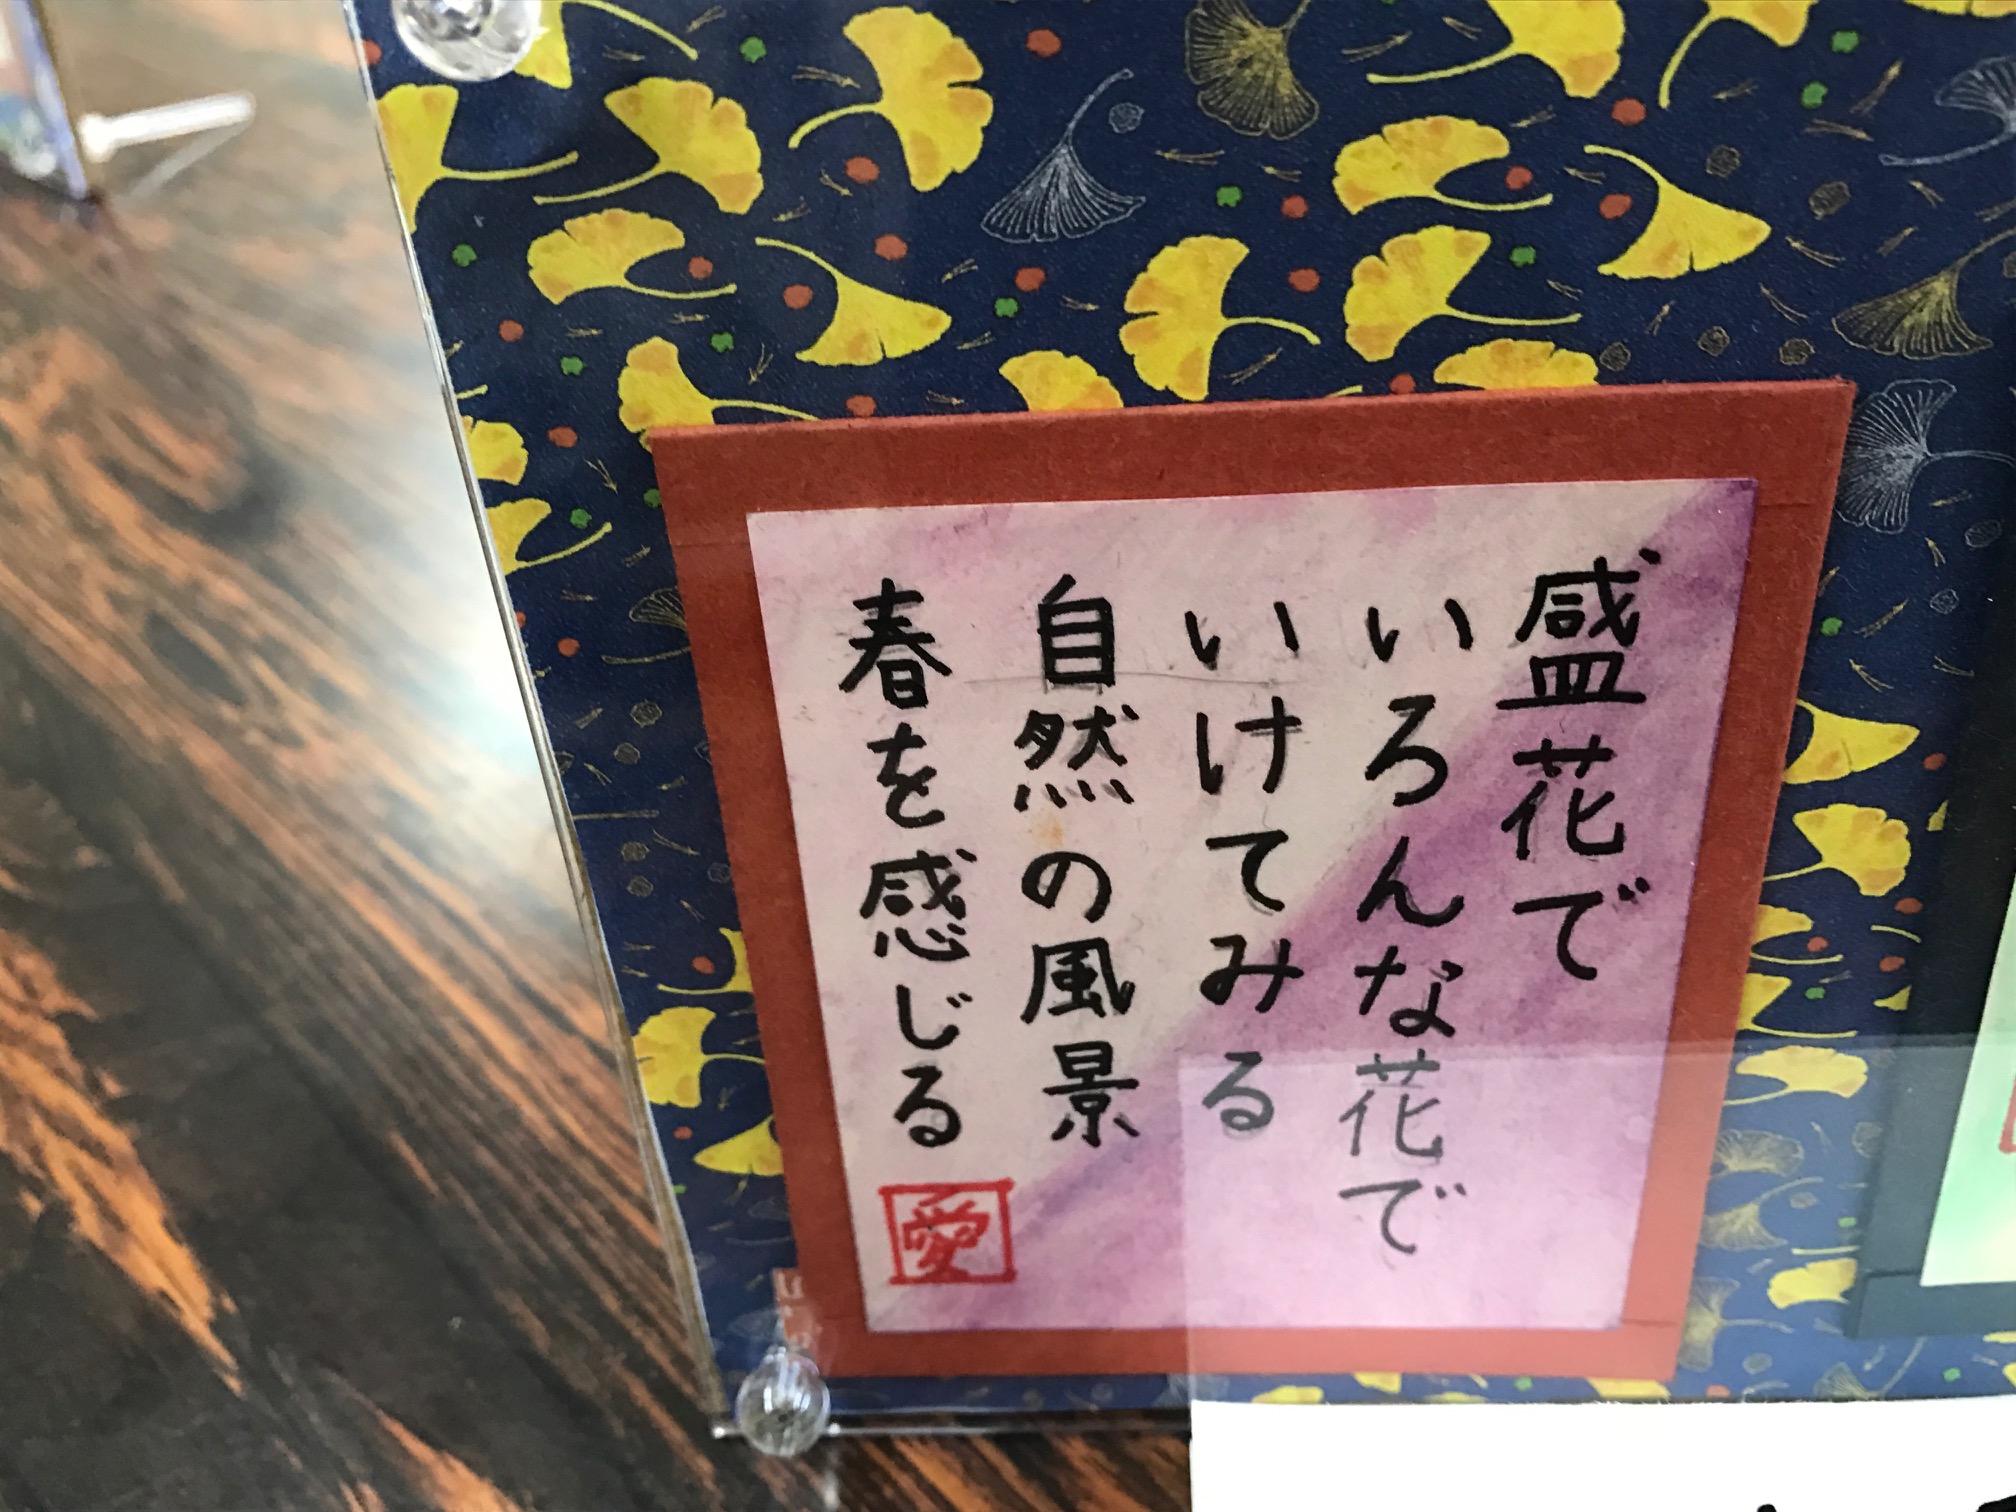 盛花で
いろんな花で
いけてみる
自然の風景
春を感じる
愛